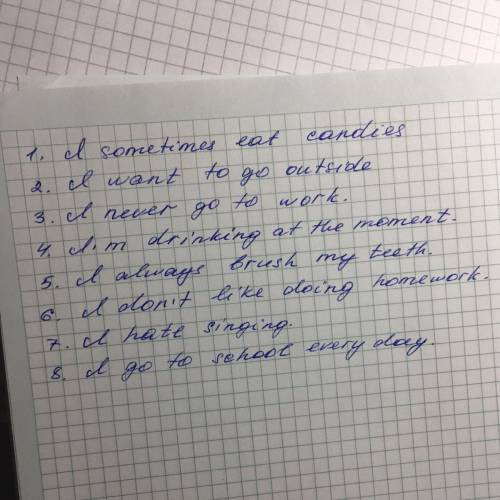 1. I sometimes eat candies
2. I want to go outside
3. I never go to work.
4. I'm drinking at the moment.
5. I always brush my teeth.
6. I don't like doing homework.
7. I hate singing.
8. I go to school every day.